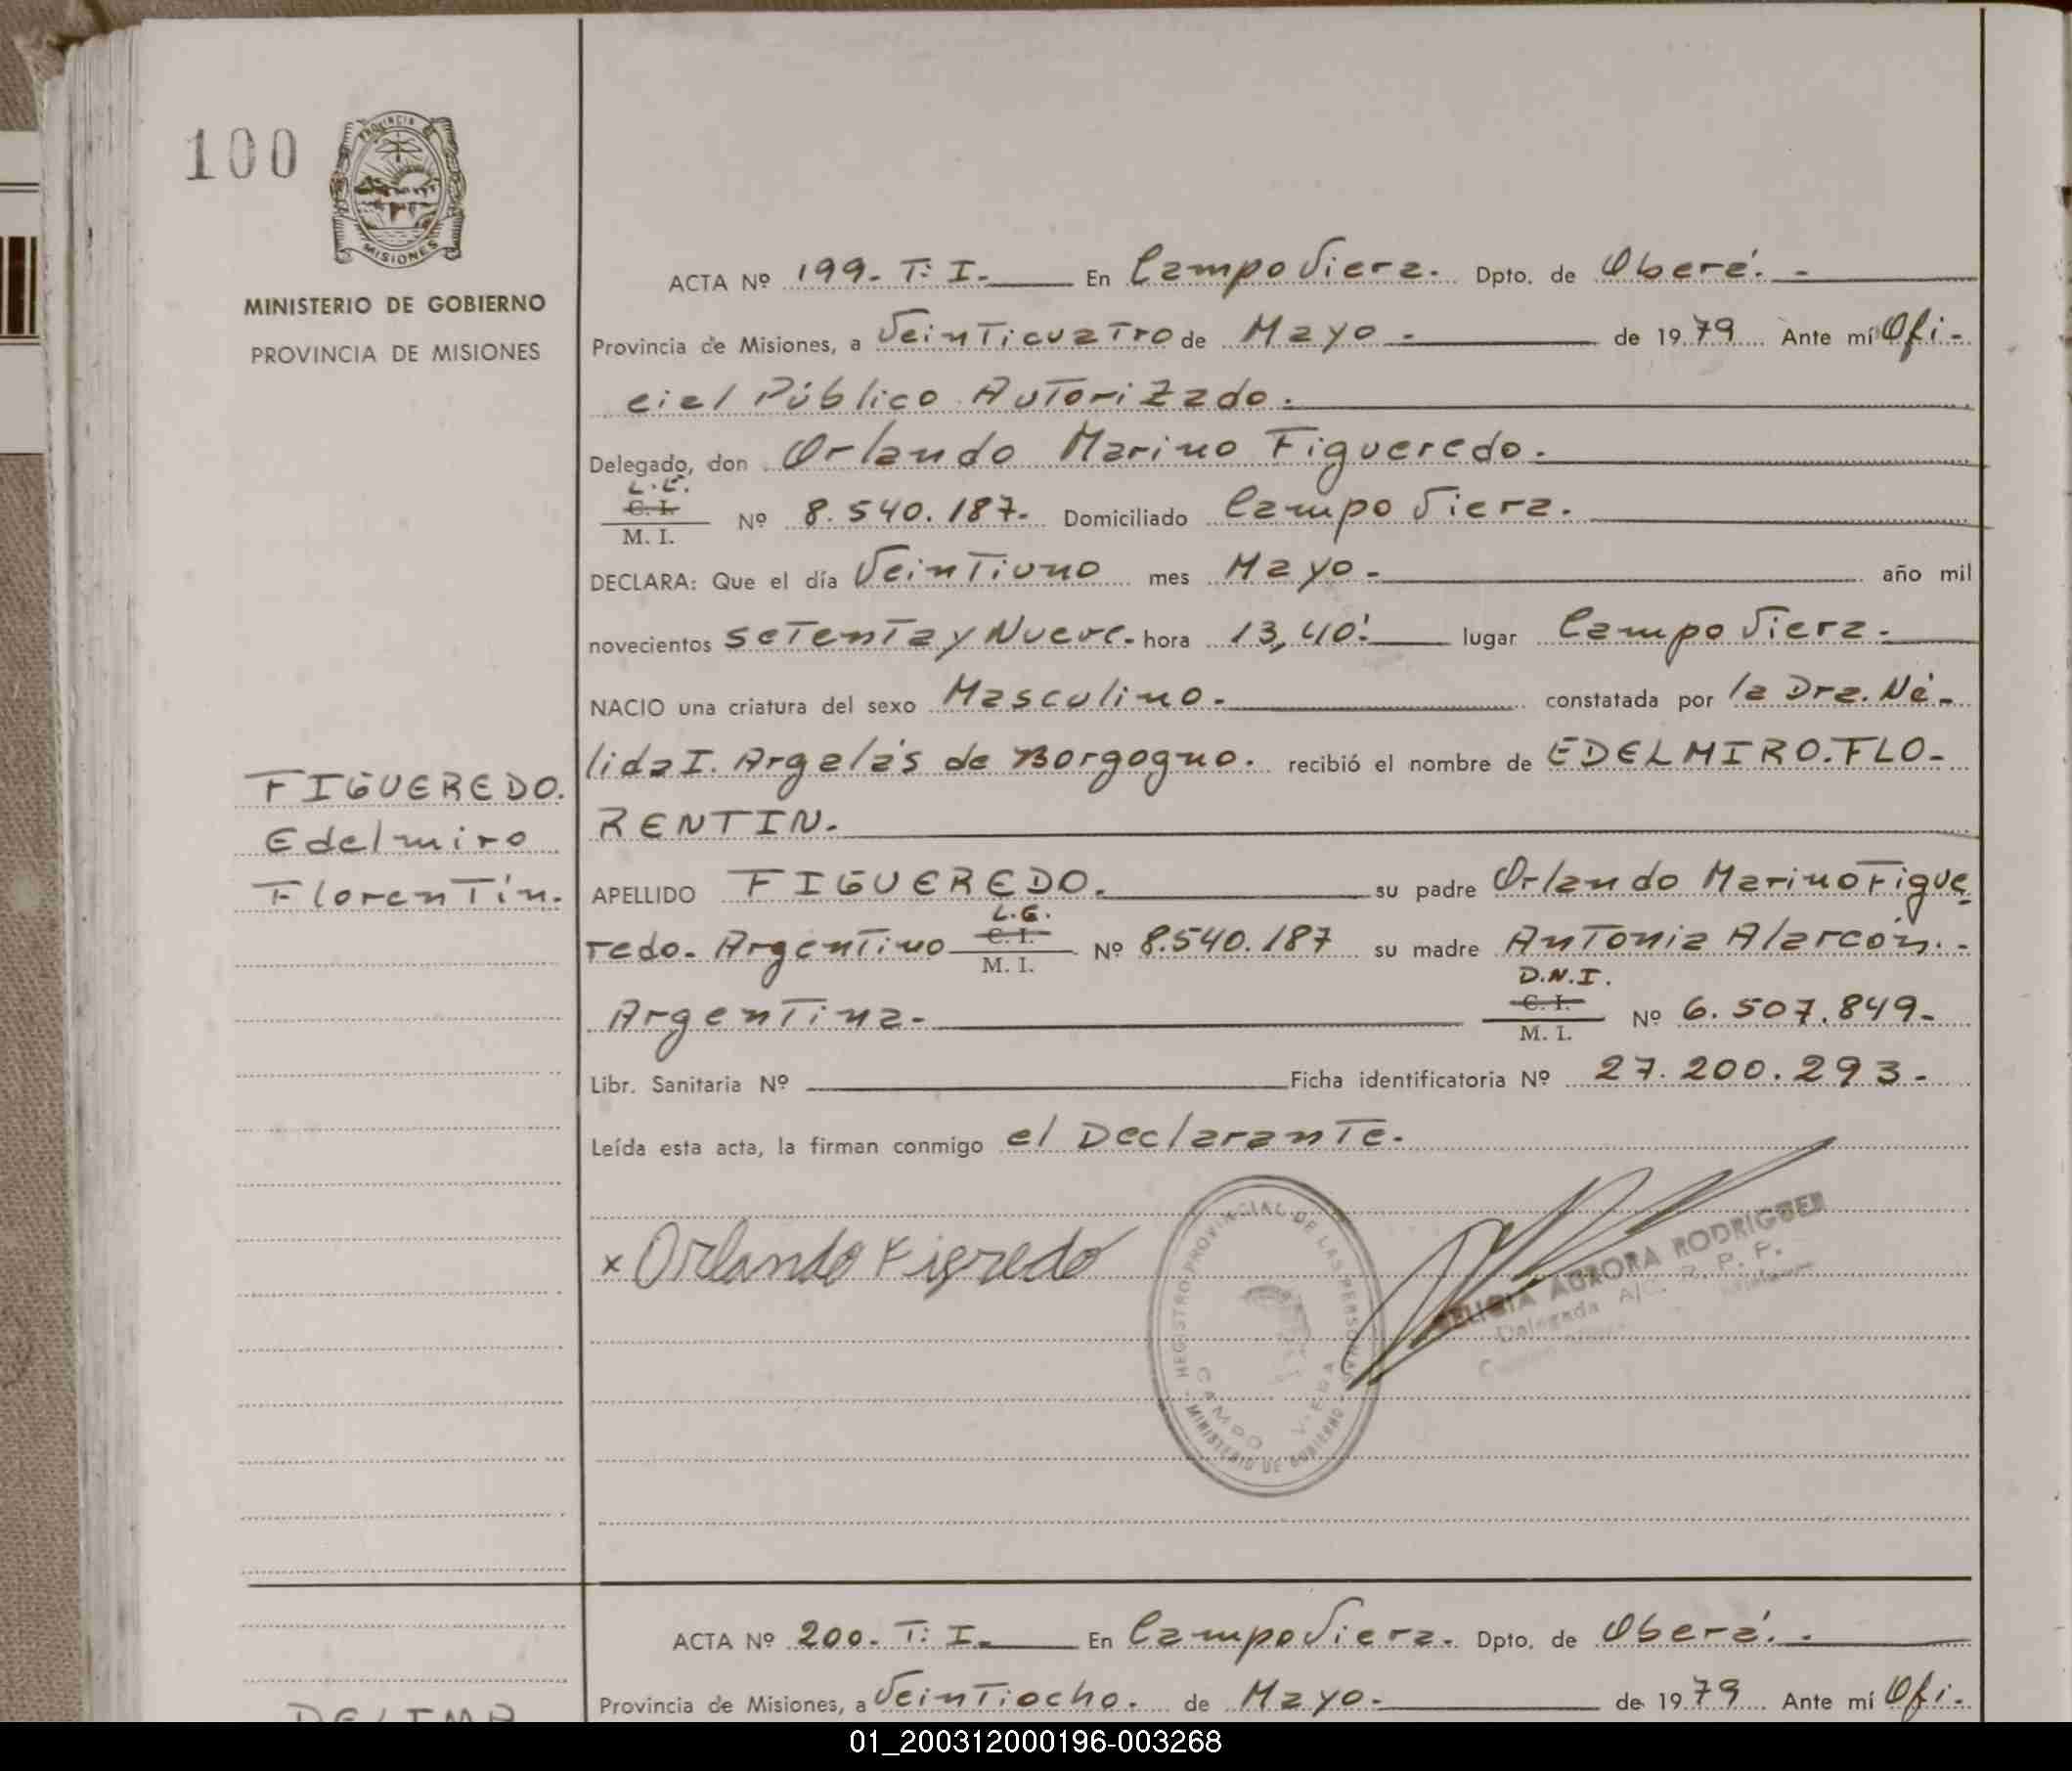 100
PROVINCIA DE
MISIONES
MINISTERIO DE GOBIERNO
PROVINCIA DE MISIONES
FIGUEREDO.
Edelmiro
Florentín.
ACTA Nº 199. T: I. En Campo Viera. Dpto. de Oberá. -
Provincia de Misiones, a Veinticuatro de Mayo - de 1979 Ante mí Ofi-
cial Público Autorizado.
Delegado, don Orlando Marino Figueredo.
L.E.
C. I.
M. I. Nº 8.540.187- Domiciliado Campo Viera.
DECLARA: Que el día Veintiuno mes Mayo - año mil
novecientos Setenta y Nueve. hora 13,40' lugar Campo Viera -
NACIO una criatura del sexo Masculino. constatada por la Dra. Né-
lida I. Argalás de Borgogno. recibió el nombre de EDELMIRO.FLO-
RENTIN.
APELLIDO FIGUEREDO. su padre Orlando Marino Figue
L.E.
redo. Argentino C. I. Nº 8.540.187 su madre Antonia Alarcón. -
M. I.
D.N.I.
Argentina- C. I. Nº 6.507.849-
M. I.
Libr. Sanitaria Nº Ficha identificatoria Nº 27.200.293-
Leída esta acta, la firman conmigo el Declarante.
x Orlando Figredo
REGISTRO PROVINCIAL DE LAS PERSONAS
CAMPO VIERA
MINISTERIO DE GOBIERNO
AURORA RODRIGUEZ
Delegada A/C. R. P. P.
ACTA Nº 200. T: I. En Campo Viera. Dpto. de Oberá. -
Provincia de Misiones, a Veintiocho. de Mayo. de 1979 Ante mí Ofi-
01_200312000196-003268